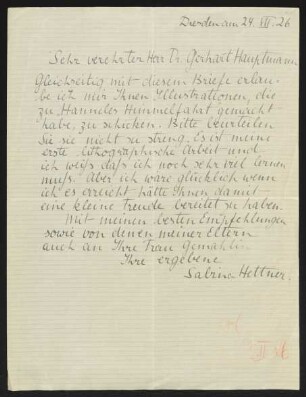 Dresden am 29 VII. 26
Sehr verehrter Herr Dr. Gerhart Hauptmann
Gleichzeitig mit diesem Briefe erlau-
be ich mir Ihnen Illustrationen, die
zu Hanneles Himmelfahrt gemacht
habe, zu schicken. Bitte beurteilen
Sie sie nicht zu streng. Es ist meine
erste lithographische Arbeit und
ich weiß daß ich noch sehr viel lernen
muß. Aber ich wäre glücklich wenn
ich es erreicht hätte Ihnen damit
eine kleine Freude bereitet zu haben.
Mit meinen besten Empfehlungen
sowie von denen meiner Eltern
auch an Ihre Frau Gemahlin
Ihre ergebene
Sabina Hettner.